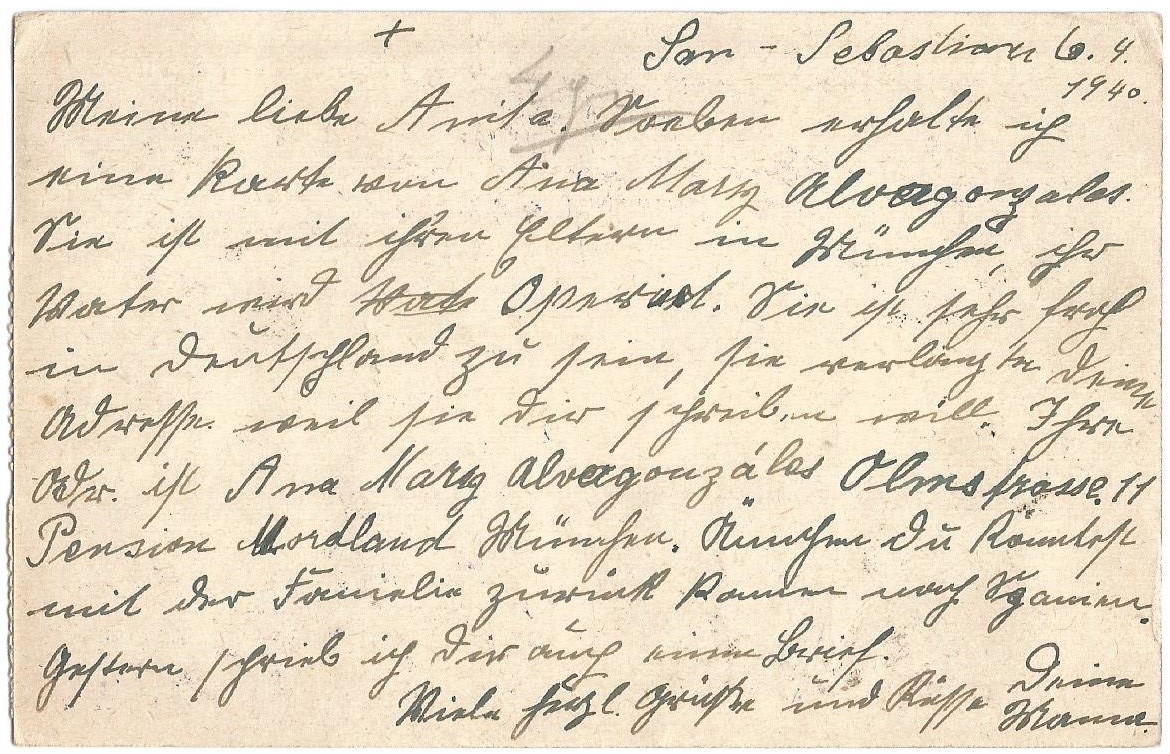 +
San - Sebastian 6. 4.
1940.
Meine liebe Anita. Soeben erhalte ich
eine Karte von Ana Mary Alvagonzales.
Sie ist mit ihren Eltern in München, ihr
Vater wird Vate Operiert. Sie ist sehr froh
in Deutschland zu sein, sie verlangte Deine
Adresse. weil sie Dir schreiben will. Ihre
Adr. ist Ana Mary Alvagonzáles Olmstrasse. 11
Pension Nordland München. Du Könntest
mit der Familie zurück Komen nach Spanien.
Gestern schrieb ich Dir auch einen Brief.
Viele herzl. Grüße und Küsse Deine
Mama.